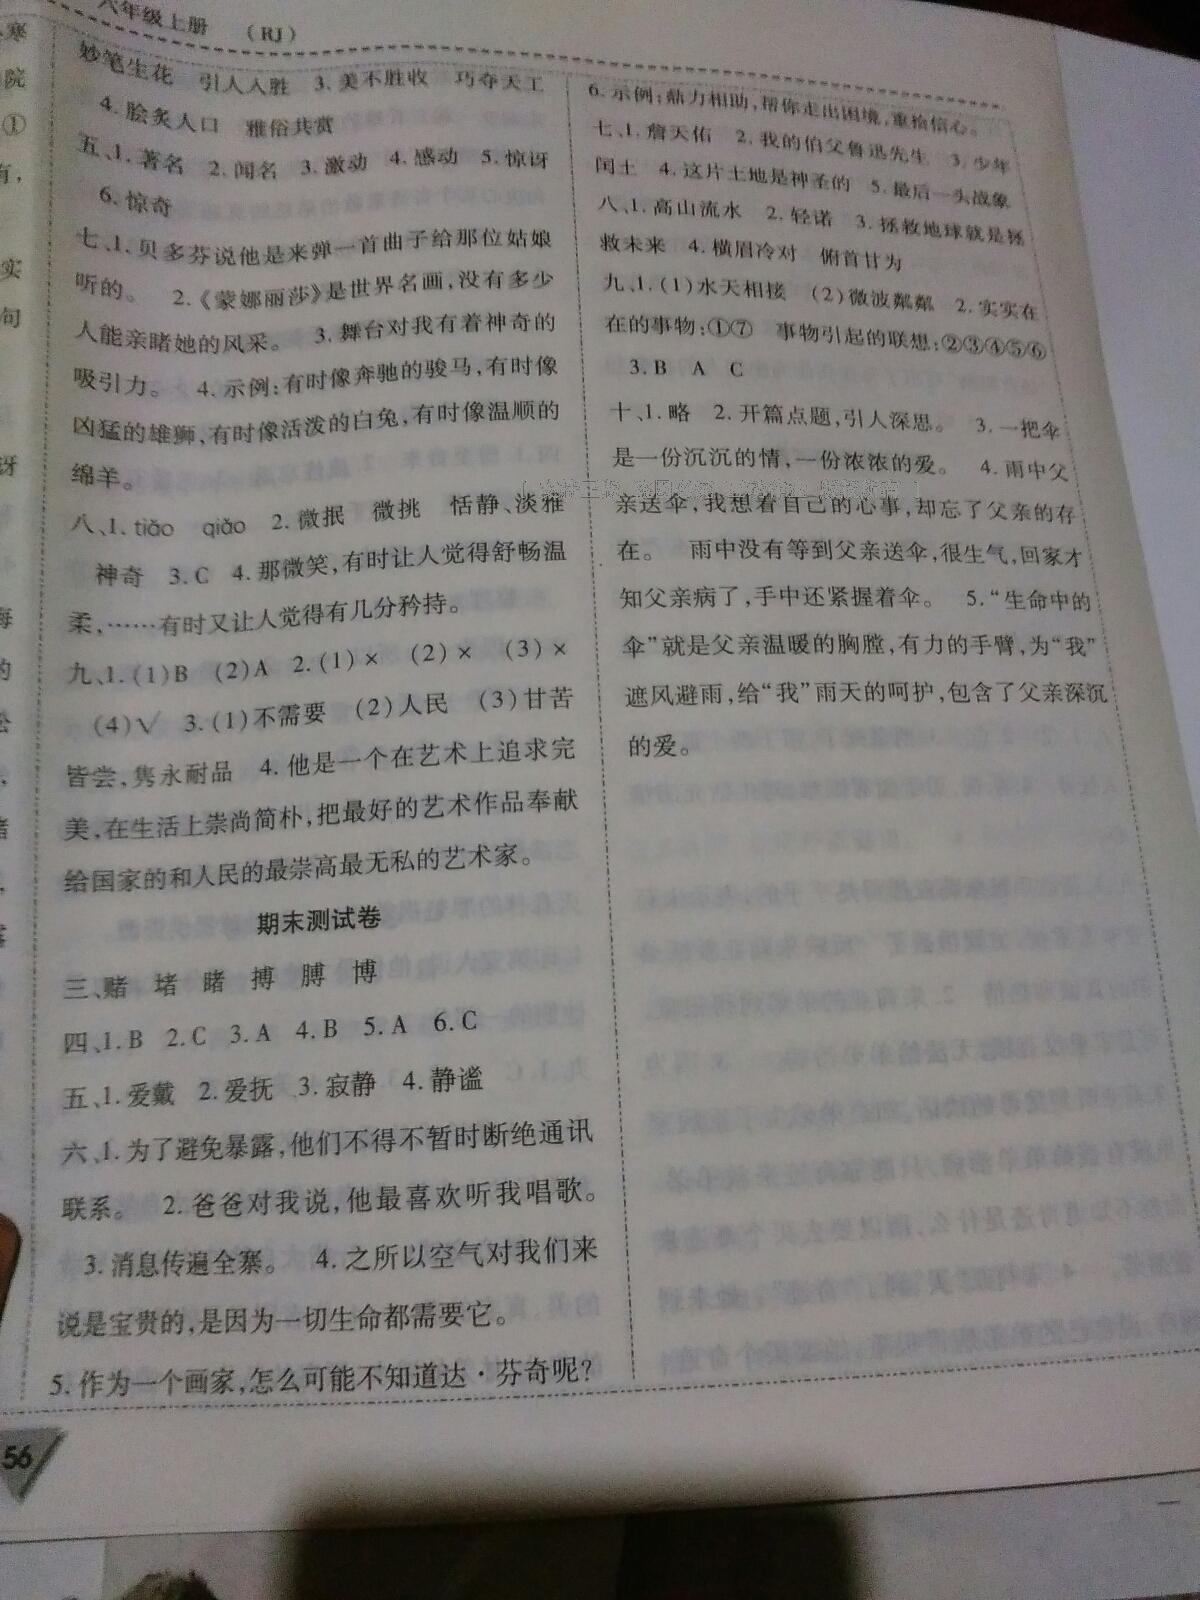 六年级上册 （RJ）
妙笔生花 引人入胜 3. 美不胜收 巧夺天工
4. 脍炙人口 雅俗共赏
五、1. 著名 2. 闻名 3. 激动 4. 感动 5. 惊讶
6. 惊奇
七、1. 贝多芬说他是来弹一首曲子给那位姑娘
听的。 2.《蒙娜丽莎》是世界名画，没有多少
人能亲睹她的风采。 3. 舞台对我有着神奇的
吸引力。 4. 示例：有时像奔驰的骏马，有时像
凶猛的雄狮，有时像活泼的白兔，有时像温顺的
绵羊。
八、1. tiǎo qiǎo 2. 微抿 微挑 恬静、淡雅
神奇 3. C 4. 那微笑，有时让人觉得舒畅温
柔，……有时又让人觉得有几分矜持。
九、1. (1)B (2)A 2. (1)× (2)× (3)×
(4)√ 3. (1)不需要 (2)人民 (3)甘苦
皆尝，隽永耐品 4. 他是一个在艺术上追求完
美，在生活上崇尚简朴，把最好的艺术作品奉献
给国家的和人民的最崇高最无私的艺术家。
期末测试卷
三、赌 堵 睹 搏 膊 博
四、1. B 2. C 3. A 4. B 5. A 6. C
五、1. 爱戴 2. 爱抚 3. 寂静 4. 静谧
六、1. 为了避免暴露，他们不得不暂时断绝通讯
联系。 2. 爸爸对我说，他最喜欢听我唱歌。
3. 消息传遍全寨。 4. 之所以空气对我们来
说是宝贵的，是因为一切生命都需要它。
5. 作为一个画家，怎么可能不知道达·芬奇呢？
56
6. 示例：鼎力相助，帮你走出困境，重拾信心。
七、1. 詹天佑 2. 我的伯父鲁迅先生 3. 少年
闰土 4. 这片土地是神圣的 5. 最后一头战象
八、1. 高山流水 2. 轻诺 3. 拯救地球就是拯
救未来 4. 横眉冷对 俯首甘为
九、1. (1)水天相接 (2)微波粼粼 2. 实实在
在的事物：①⑦ 事物引起的联想：②③④⑤⑥
3. B A C
十、1. 略 2. 开篇点题，引人深思。 3. 一把伞
是一份沉沉的情，一份浓浓的爱。 4. 雨中父
亲送伞，我想着自己的心事，却忘了父亲的存
在。 雨中没有等到父亲送伞，很生气，回家才
知父亲病了，手中还紧握着伞。 5. “生命中的
伞”就是父亲温暖的胸膛，有力的手臂，为“我”
遮风避雨，给“我”雨天的呵护，包含了父亲深沉
的爱。